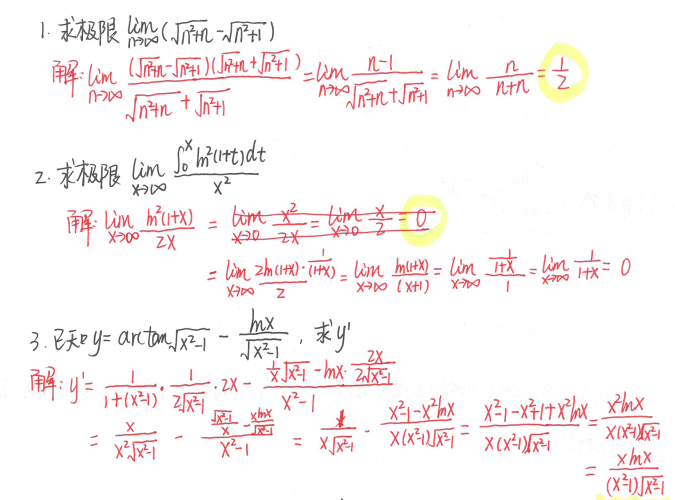 1. 求极限 lim_{n→∞} (√(n²+n) - √(n²+1))
解: lim_{n→∞} (√(n²+n) - √(n²+1))(√(n²+n) + √(n²+1)) / (√(n²+n) + √(n²+1)) = lim_{n→∞} (n-1) / (√(n²+n) + √(n²+1)) = lim_{n→∞} n/(n+n) = 1/2
2. 求极限 lim_{x→∞} ∫₀ˣ ln²(1+t)dt / x²
解: lim_{x→∞} ln²(1+x) / 2x = lim_{x→0} x²/2x = lim_{x→0} x/2 = 0
= lim_{x→∞} (2ln(1+x) · 1/(1+x)) / 2 = lim_{x→∞} ln(1+x) / (x+1) = lim_{x→∞} (1/(1+x)) / 1 = lim_{x→∞} 1/(1+x) = 0
3. 已知 y = arctan√(x²-1) - lnx/√(x²-1), 求y'
解: y' = 1/(1+(x²-1)) · 1/(2√(x²-1)) · 2x - (1/x √(x²-1) - lnx · 2x/(2√(x²-1))) / (x²-1)
= x/(x²√(x²-1)) - (√(x²-1)/x - xlnx/√(x²-1)) / (x²-1) = 1/(x√(x²-1)) - (x²-1-x²lnx) / (x(x²-1)√(x²-1)) = (x²-1-x²+1+x²lnx) / (x(x²-1)√(x²-1)) = x²lnx / (x(x²-1)√(x²-1))
= xlnx / ((x²-1)√(x²-1))